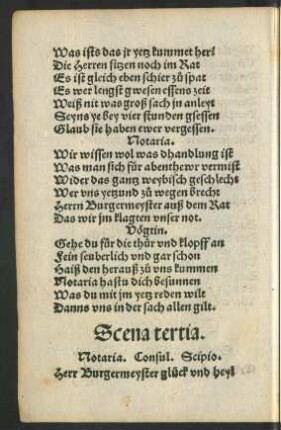 Was ists das jr yetz kummet her/
Die Herren sitzen noch im Rat
Es ist gleich eben schier zů spat
Es wer lengst gwesen essens zeit
Weiß nit was groß sach jn anleyt
Seyns ye bey vier stunden gsessen
Glaub sie haben ewer vergessen.
Notaria.
Wir wissen wol was dhandlung ist
Was man sich für abenthewr vermist
Wider das gantz weybisch geschlecht
Wer vns yetzund zů wegen brecht
Herrn Burgermeyster auß dem Rat
Das wir jm klagten vnser not.
Vögtin.
Gehe du für die thür vnd klopff an
Fein seuberlich vnd gar schon
Haiß den herauß zů vns kummen
Notaria hastu dich besunnen
Was du mit jm yetz reden wilt
Danns vns in der sach allen gilt.
Scena tertia.
Notaria. Consul. Scipio.
Herr Burgermeyster glück vnd heyl